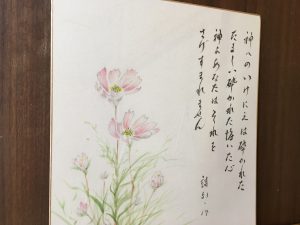 神へのいけにえは砕かれた
たましい砕かれた悔いた心
神よあなたはそれを
さげすまれません
詩51・17